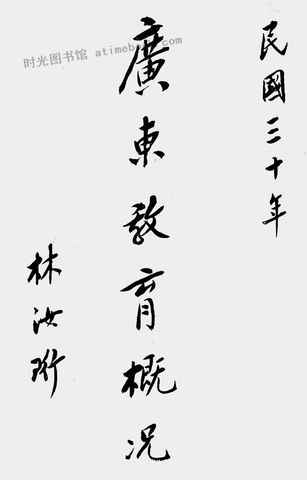 民國三十年
廣東教育概況
林汝珩
时光图书馆 atimeb